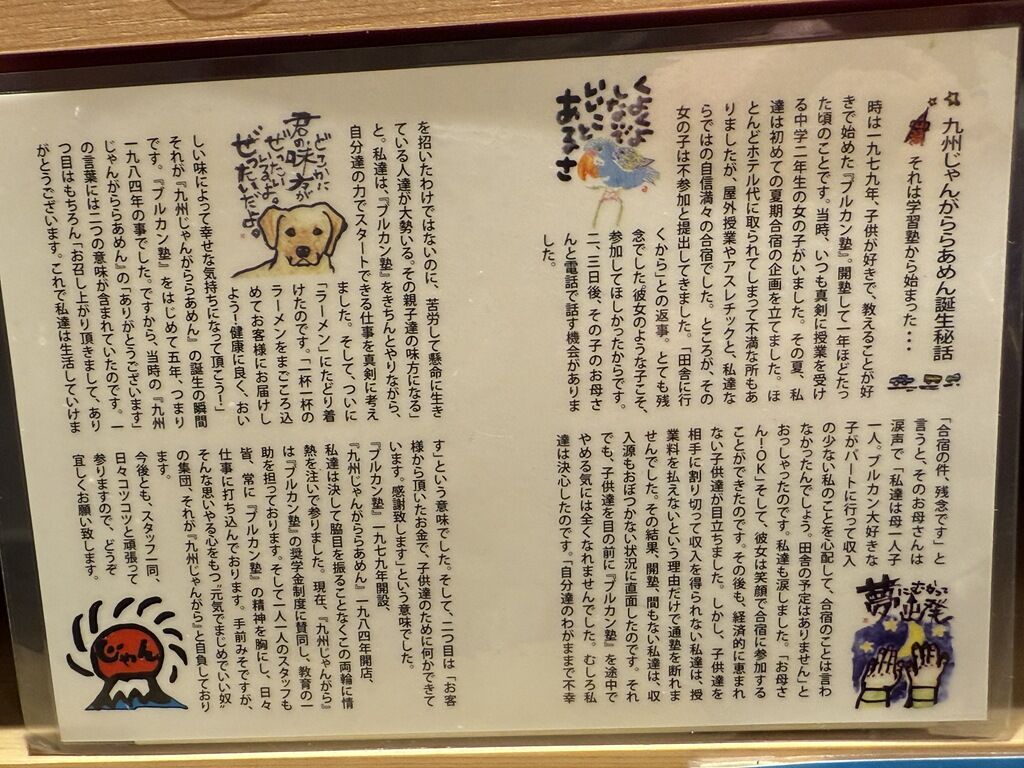 九州じゃんがららあめん誕生秘話
それは学習塾から始まった・・・・
時は一九七九年、子供が好きで、教えることが好
きで始めた『ブルカン塾』。開塾して一年ほどたっ
た頃のことです。当時、いつも真剣に授業を受け
る中学二年生の女の子がいました。その夏、私
達は初めての夏期合宿の企画を立てました。ほ
とんどホテル代に取られてしまって不満な所もあ
りましたが、屋外授業やアスレチックと、私達な
らではの自信満々の合宿でした。ところが、その
女の子は不参加と提出してきました。「田舎に行
くから」との返事。とても残
念でした。彼女のような子こそ、
参加してほしかったからです。
二、三日後、その子のお母さ
んと電話で話す機会がありま
した。
くよくよ
しなさんな
いいこと
あるさ
「合宿の件、残念です」と
言うと、そのお母さんは
涙声で「私達は母一人子
一人。ブルカン大好きな
子がパートに行って収入
の少ない私のことを心配して、合宿のことは言わ
なかったんでしょう。田舎の予定はありません」と
おっしゃったのです。私達も涙しました。「お母さ
ん！OK」そして、彼女は笑顔で合宿に参加する
ことができたのです。その後も、経済的に恵まれ
ない子供達が目立ちました。しかし、子供達を
相手に割り切って収入を得られない私達は、授
業料を払えないという理由だけで通塾を断れま
せんでした。その結果、開塾、間もない私達は、収
入源もおぼつかない状況に直面したのです。それ
でも、子供達を目の前に『ブルカン塾』を途中で
やめる気には全くなれませんでした。むしろ私
達は決心したのです。「自分達のわがままで不幸
夢にむかって
出発
を招いたわけではないのに、苦労して懸命に生き
ている人達が大勢いる。その親子達の味方になる」
と。私達は、『ブルカン塾』をきちんとやりながら、
自分達の力でスタートできる仕事を真剣に考え
ました。そして、ついに
「ラーメン」にたどり着
けたのです。「一杯一杯の
ラーメンをまごころ込
めてお客様にお届けし
よう！健康に良く、おい
しい味によって幸せな気持ちになって頂こう！」
それが『九州じゃんがららあめん』の誕生の瞬間
です。『ブルカン塾』をはじめて五年、つまり
一九八四年の事でした。ですから、当時の『九州
じゃんがららあめん』の「ありがとうございます」
の言葉には二つの意味が含まれていたのです。一
つ目はもちろん「お召し上がり頂きまして、あり
がとうございます。これで私達は生活していけま
どこかに
君の味方が
ぜったい
いるよ。
ぜったいだよ。
す」という意味でした。そして、二つ目は「お客
様から頂いたお金で、子供達のために何かできて
います。感謝致します」という意味でした。
『ブルカン塾』一九七九年開設、
『九州じゃんがららあめん』一九八四年開店、
私達は決して脇目を振ることなくこの両輪に情
熱を注いで参りました。現在、『九州じゃんがら』
は『ブルカン塾』の奨学金制度に賛同し、教育の一
助を担っております。そして一人一人のスタッフも
皆、常に『ブルカン塾』の精神を胸にし、日々
仕事に打ち込んでおります。手前みそですが、
そんな思いやる心をもつ“元気でまじめでいい奴”
の集団、それが『九州じゃんがら』と自負しており
ます。
今後とも、スタッフ一同、
日々コツコツと頑張って
参りますので、どうぞ
宜しくお願い致します。
じゃん